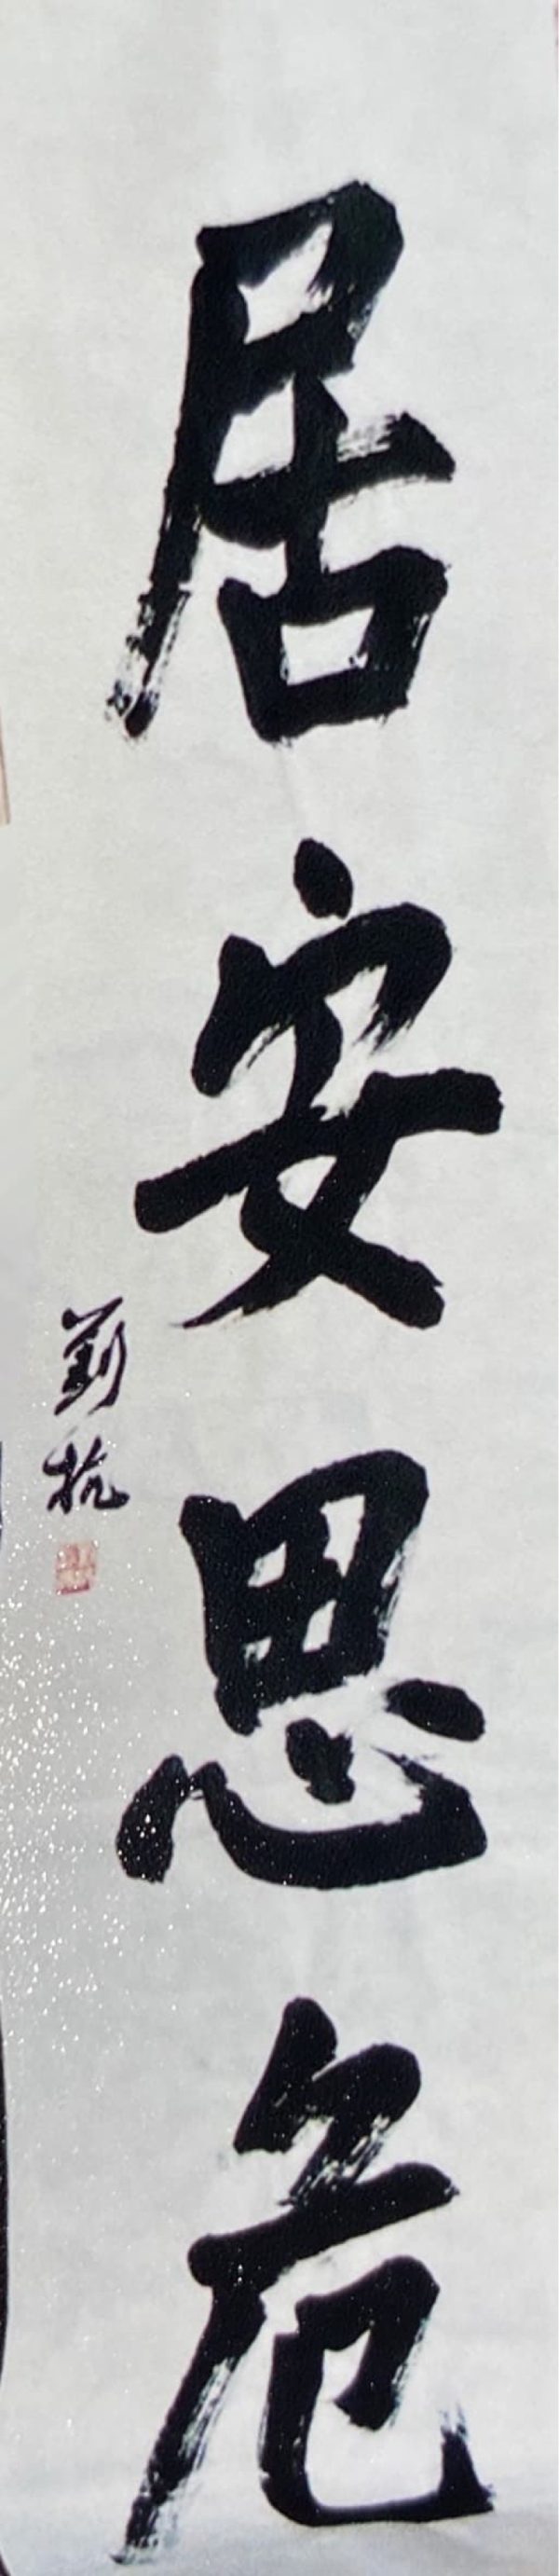 居安思危
劉抗